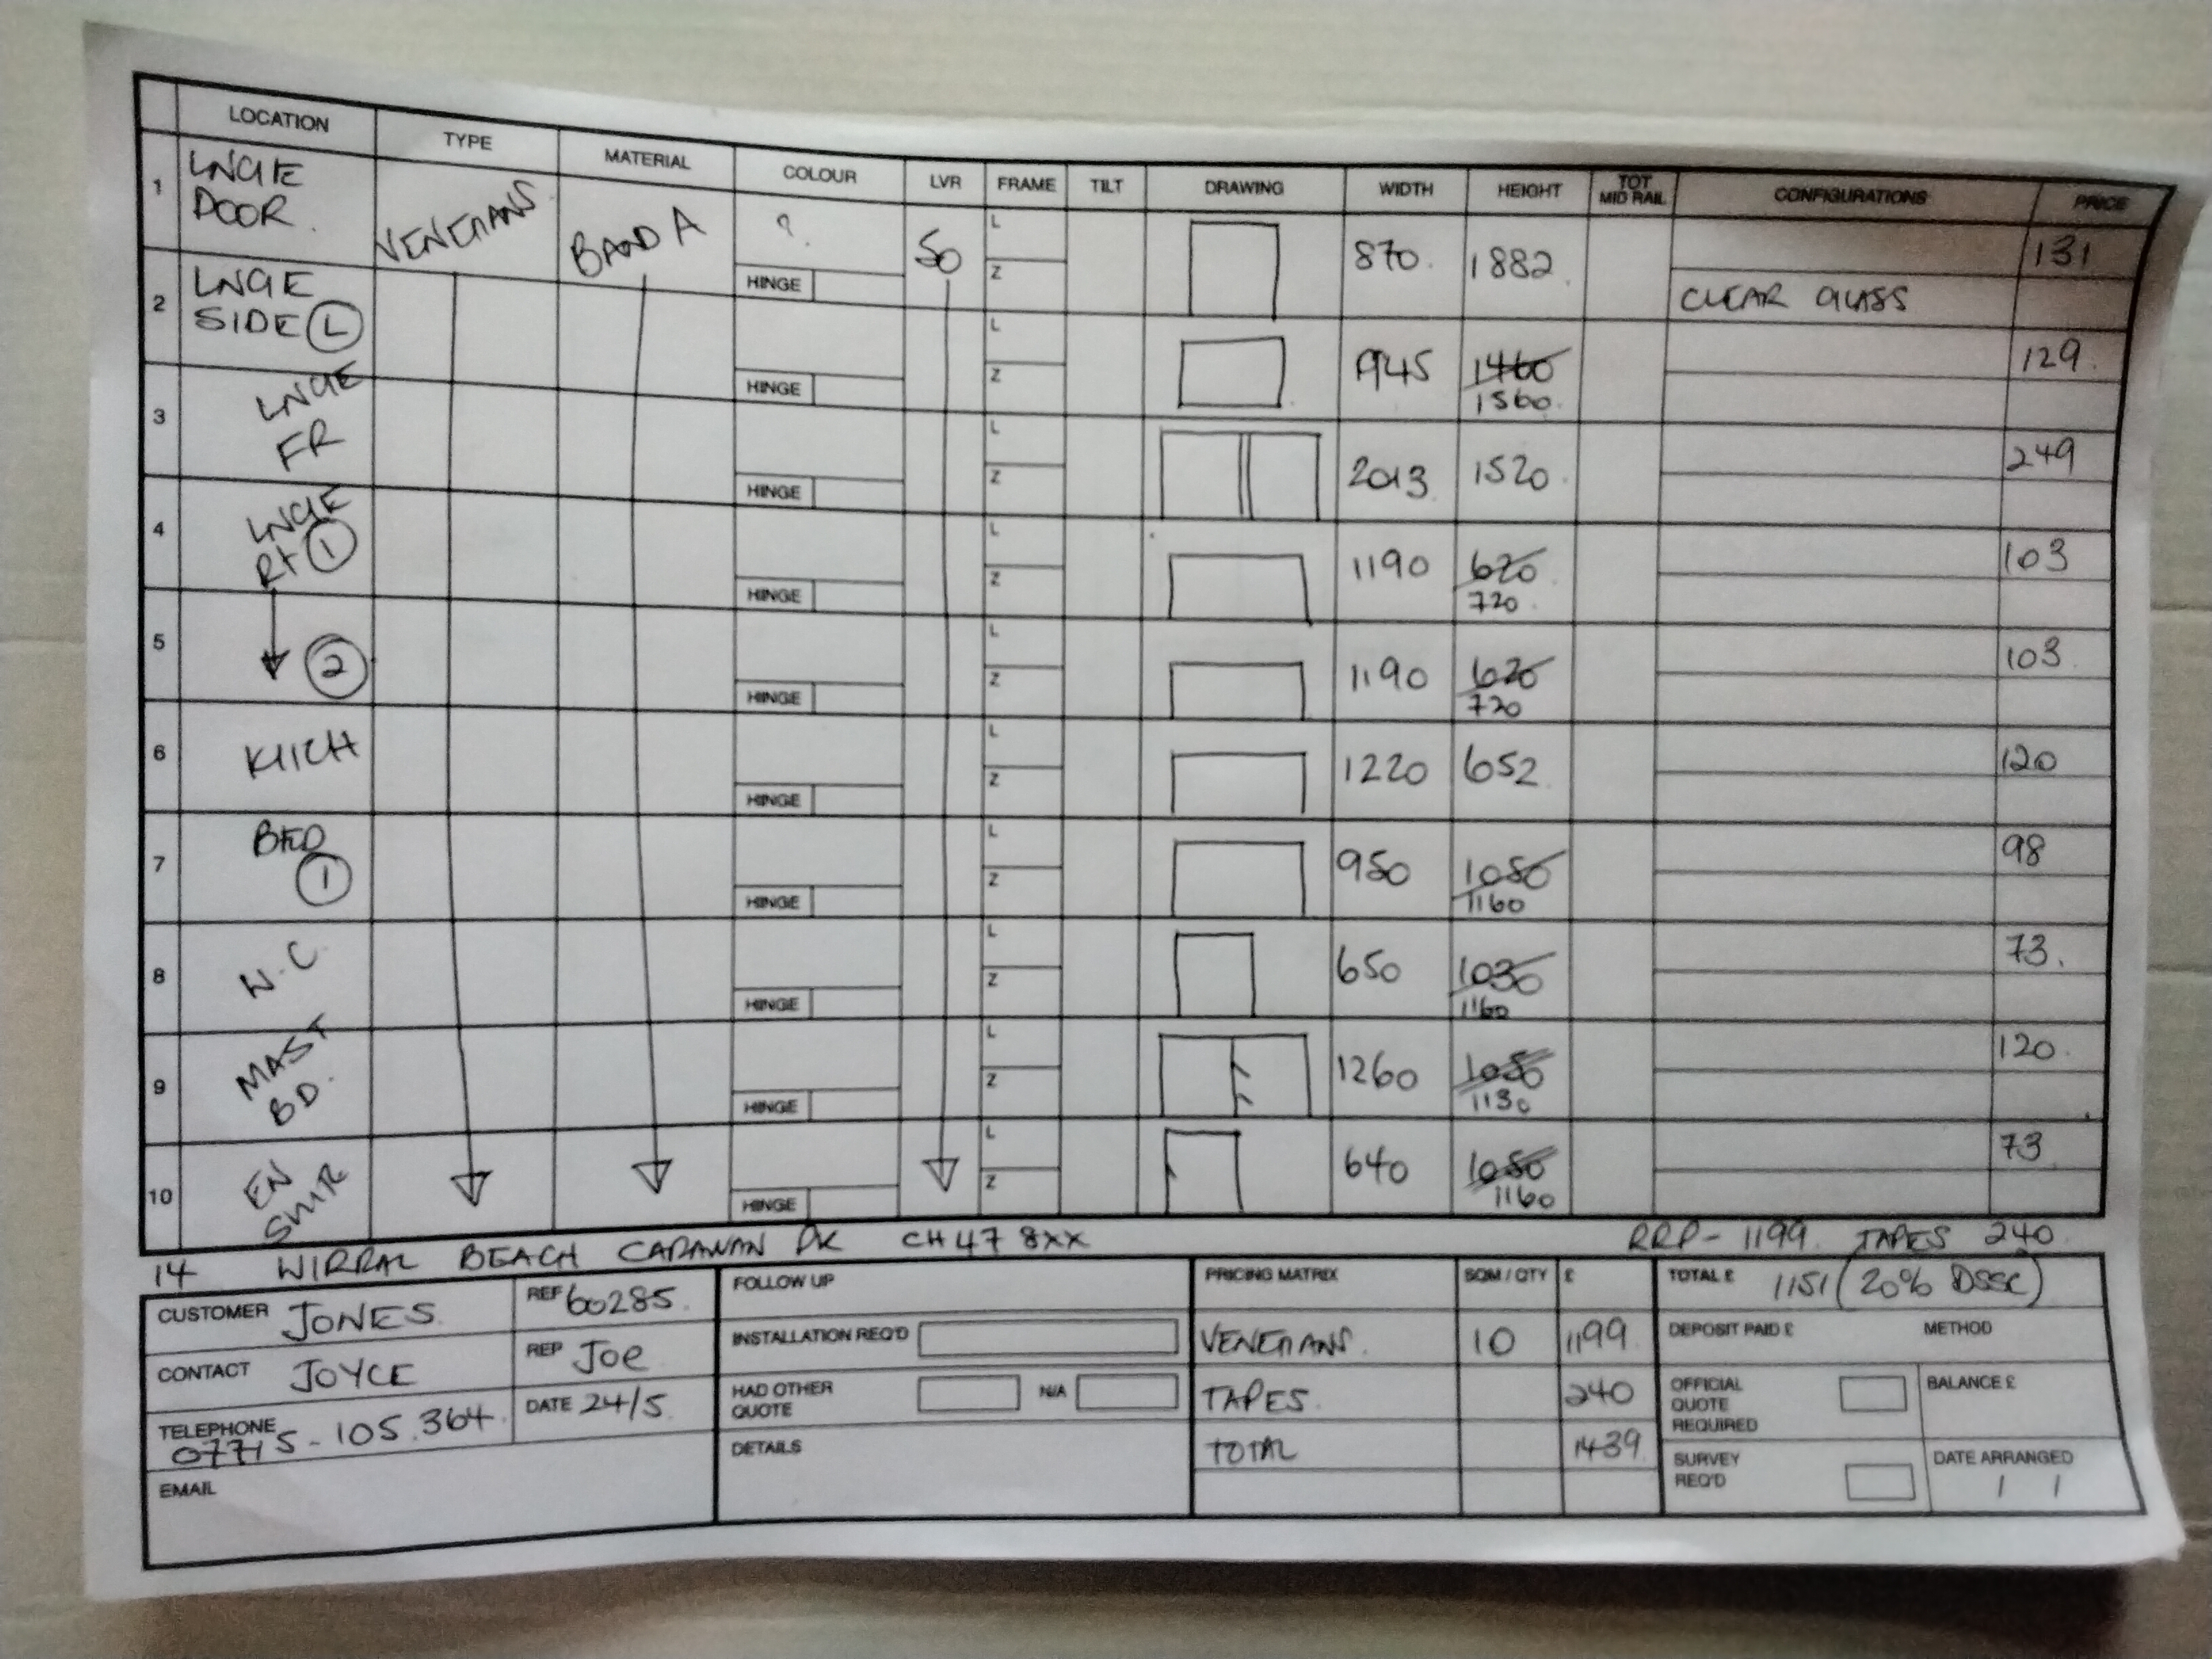 LOCATION TYPE MATERIAL COLOUR LVR FRAME TILT DRAWING WIDTH HEIGHT TOT MID RAIL CONFIGURATIONS PRICE
1 LNGE DOOR. VENETIANS BAND A ? HINGE 50 L Z 870. 1882. CLEAR GLASS 131
2 LNGE SIDE (L) HINGE L Z 945 1460 1560. 129.
3 LNGE FR HINGE L Z 2013 1520. 249
4 LNGE Rt (1) HINGE L Z 1190 620 720. 103
5 (2) HINGE L Z 1190 620 720 103.
6 KITCH HINGE L Z 1220 652 120
7 BED (1) HINGE L Z 950 1050 1160 98
8 W.C. HINGE L Z 650 1030 1160 73.
9 MAST BD. HINGE L Z 1260 1050 1130 120.
10 EN SUIR HINGE L Z 640 1050 1160 73
14 WIRRAL BEACH CARAVAN PK CH47 8XX RRP- 1199. TAPES 240
CUSTOMER JONES. REF 60285.
CONTACT JOYCE REP Joe
TELEPHONE 07715-105.364. DATE 24/5.
EMAIL
FOLLOW UP
INSTALLATION REQ'D
HAD OTHER QUOTE N/A
DETAILS
PRICING MATRIX SQM / QTY £
VENETIANS. 10 1199
TAPES. 240
TOTAL 1439.
TOTAL £ 1151 (20% DSSC)
DEPOSIT PAID £ METHOD
OFFICIAL QUOTE REQUIRED BALANCE £
SURVEY REQ'D DATE ARRANGED / /